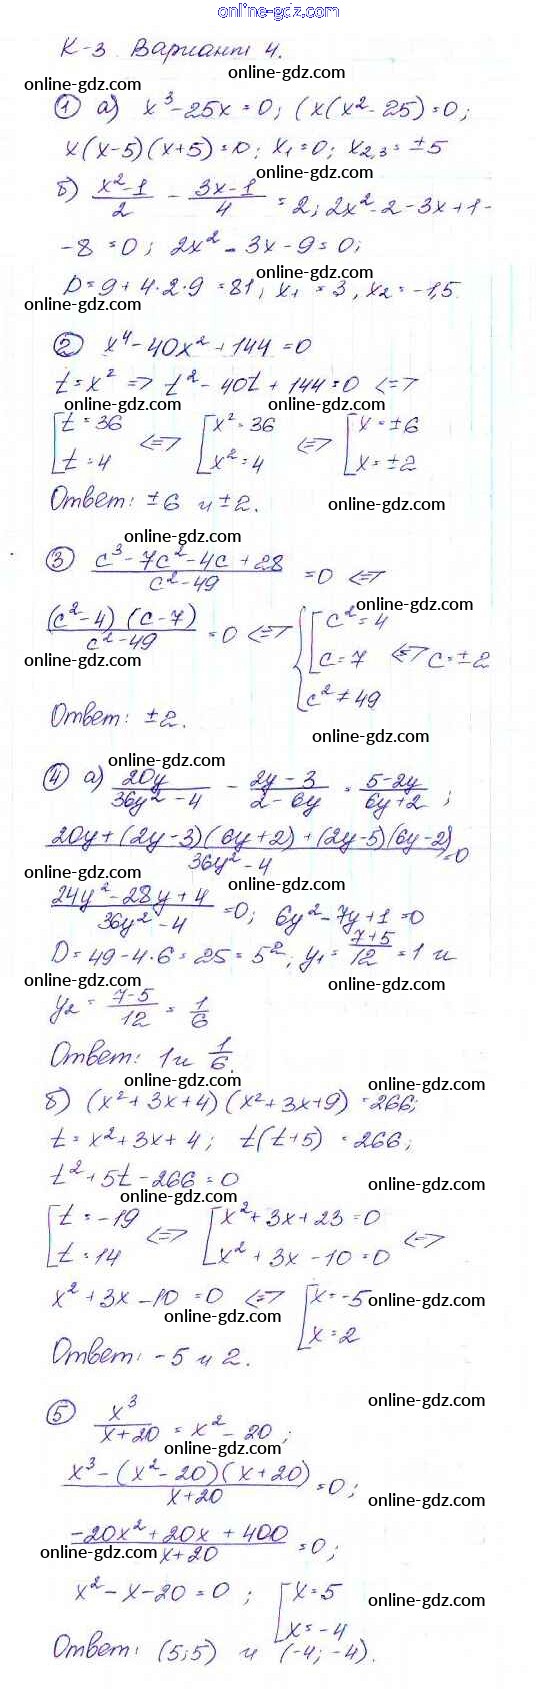 online-gdz.com
К-3 Вариант 4.
online-gdz.com online-gdz.com
① а) x³ - 25x = 0; (x(x² - 25) = 0;
online-gdz.com
x(x-5)(x+5) = 0; x₁ = 0; x₂,₃ = ±5
online-gdz.com
б) (x²-1)/2 - (3x-1)/4 = 2; 2x² - 2 - 3x + 1 -
online-gdz.com
- 8 = 0; 2x² - 3x - 9 = 0;
online-gdz.com
D = 9 + 4·2·9 = 81; x₁ = 3, x₂ = -1,5
online-gdz.com
online-gdz.com
② x⁴ - 40x² + 144 = 0
online-gdz.com
t = x² => t² - 40t + 144 = 0 <=>
online-gdz.com online-gdz.com
[t = 36 <=> [x² = 36 <=> [x = ±6
t = 4 x² = 4 x = ±2
Ответ: ±6 и ±2. online-gdz.com
online-gdz.com
③ (c³ - 7c² - 4c + 28)/(c² - 49) = 0 <=>
online-gdz.com
(c² - 4)(c - 7)/(c² - 49) = 0 <=> {[c² = 4
online-gdz.com c = 7 <=> c = ±2
c² ≠ 49
Ответ: ±2.
online-gdz.com
online-gdz.com
④ а) 20y/(36y² - 4) - (2y - 3)/(2 - 6y) = (5 - 2y)/(6y + 2);
online-gdz.com
(20y + (2y - 3)(6y + 2) + (2y - 5)(6y - 2))/(36y² - 4) = 0
online-gdz.com online-gdz.com
(24y² - 28y + 4)/(36y² - 4) = 0; 6y² - 7y + 1 = 0
D = 49 - 4·6 = 25 = 5²; y₁ = (7+5)/12 = 1 и
online-gdz.com online-gdz.com
y₂ = (7-5)/12 = 1/6
Ответ: 1 и 1/6.
online-gdz.com online-gdz.com
б) (x² + 3x + 4)(x² + 3x + 9) = 266;
t = x² + 3x + 4; t(t + 5) = 266;
t² + 5t - 266 = 0 online-gdz.com
online-gdz.com
[t = -19 <=> [x² + 3x + 23 = 0
t = 14 x² + 3x - 10 = 0 <=>
x² + 3x - 10 = 0 <=> [x = -5 online-gdz.com
online-gdz.com x = 2
Ответ: -5 и 2.
online-gdz.com
⑤ x³/(x+20) = x² - 20;
online-gdz.com
(x³ - (x² - 20)(x + 20))/(x+20) = 0;
online-gdz.com
(-20x² + 20x + 400)/(x+20) = 0;
online-gdz.com online-gdz.com
x² - x - 20 = 0; [x = 5 online-gdz.com
x = -4
Ответ: (5;5) и (-4;-4).
online-gdz.com